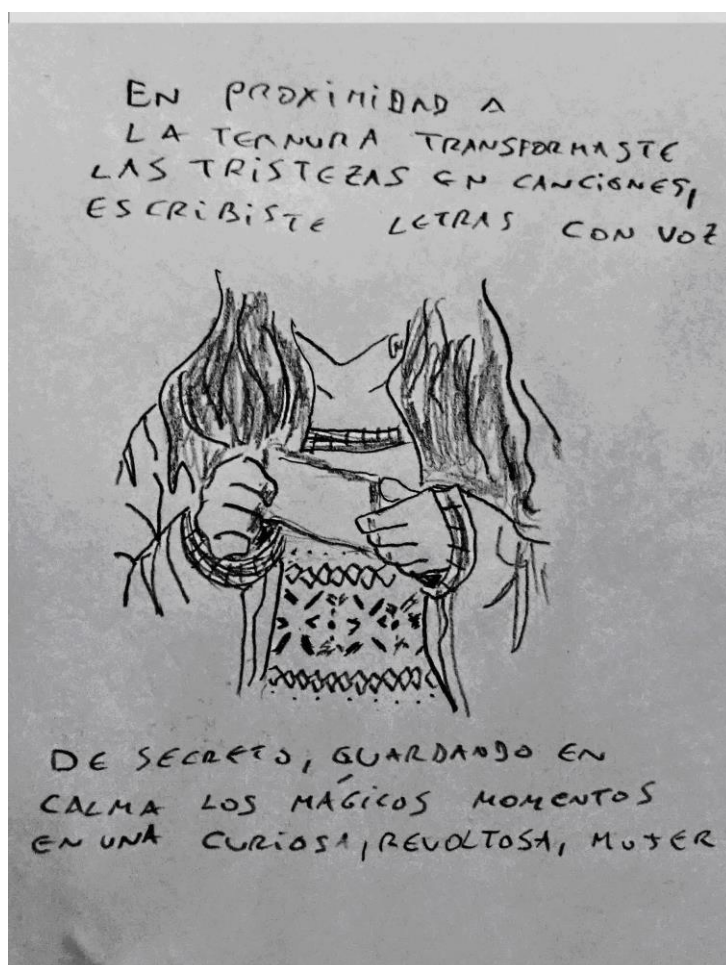 EN PROXIMIDAD A
LA TERNURA TRANSFORMASTE
LAS TRISTEZAS EN CANCIONES,
ESCRIBISTE LETRAS CON VOZ
DE SECRETO, GUARDANDO EN
CALMA LOS MÁGICOS MOMENTOS
EN UNA CURIOSA, REVOLTOSA, MUJER